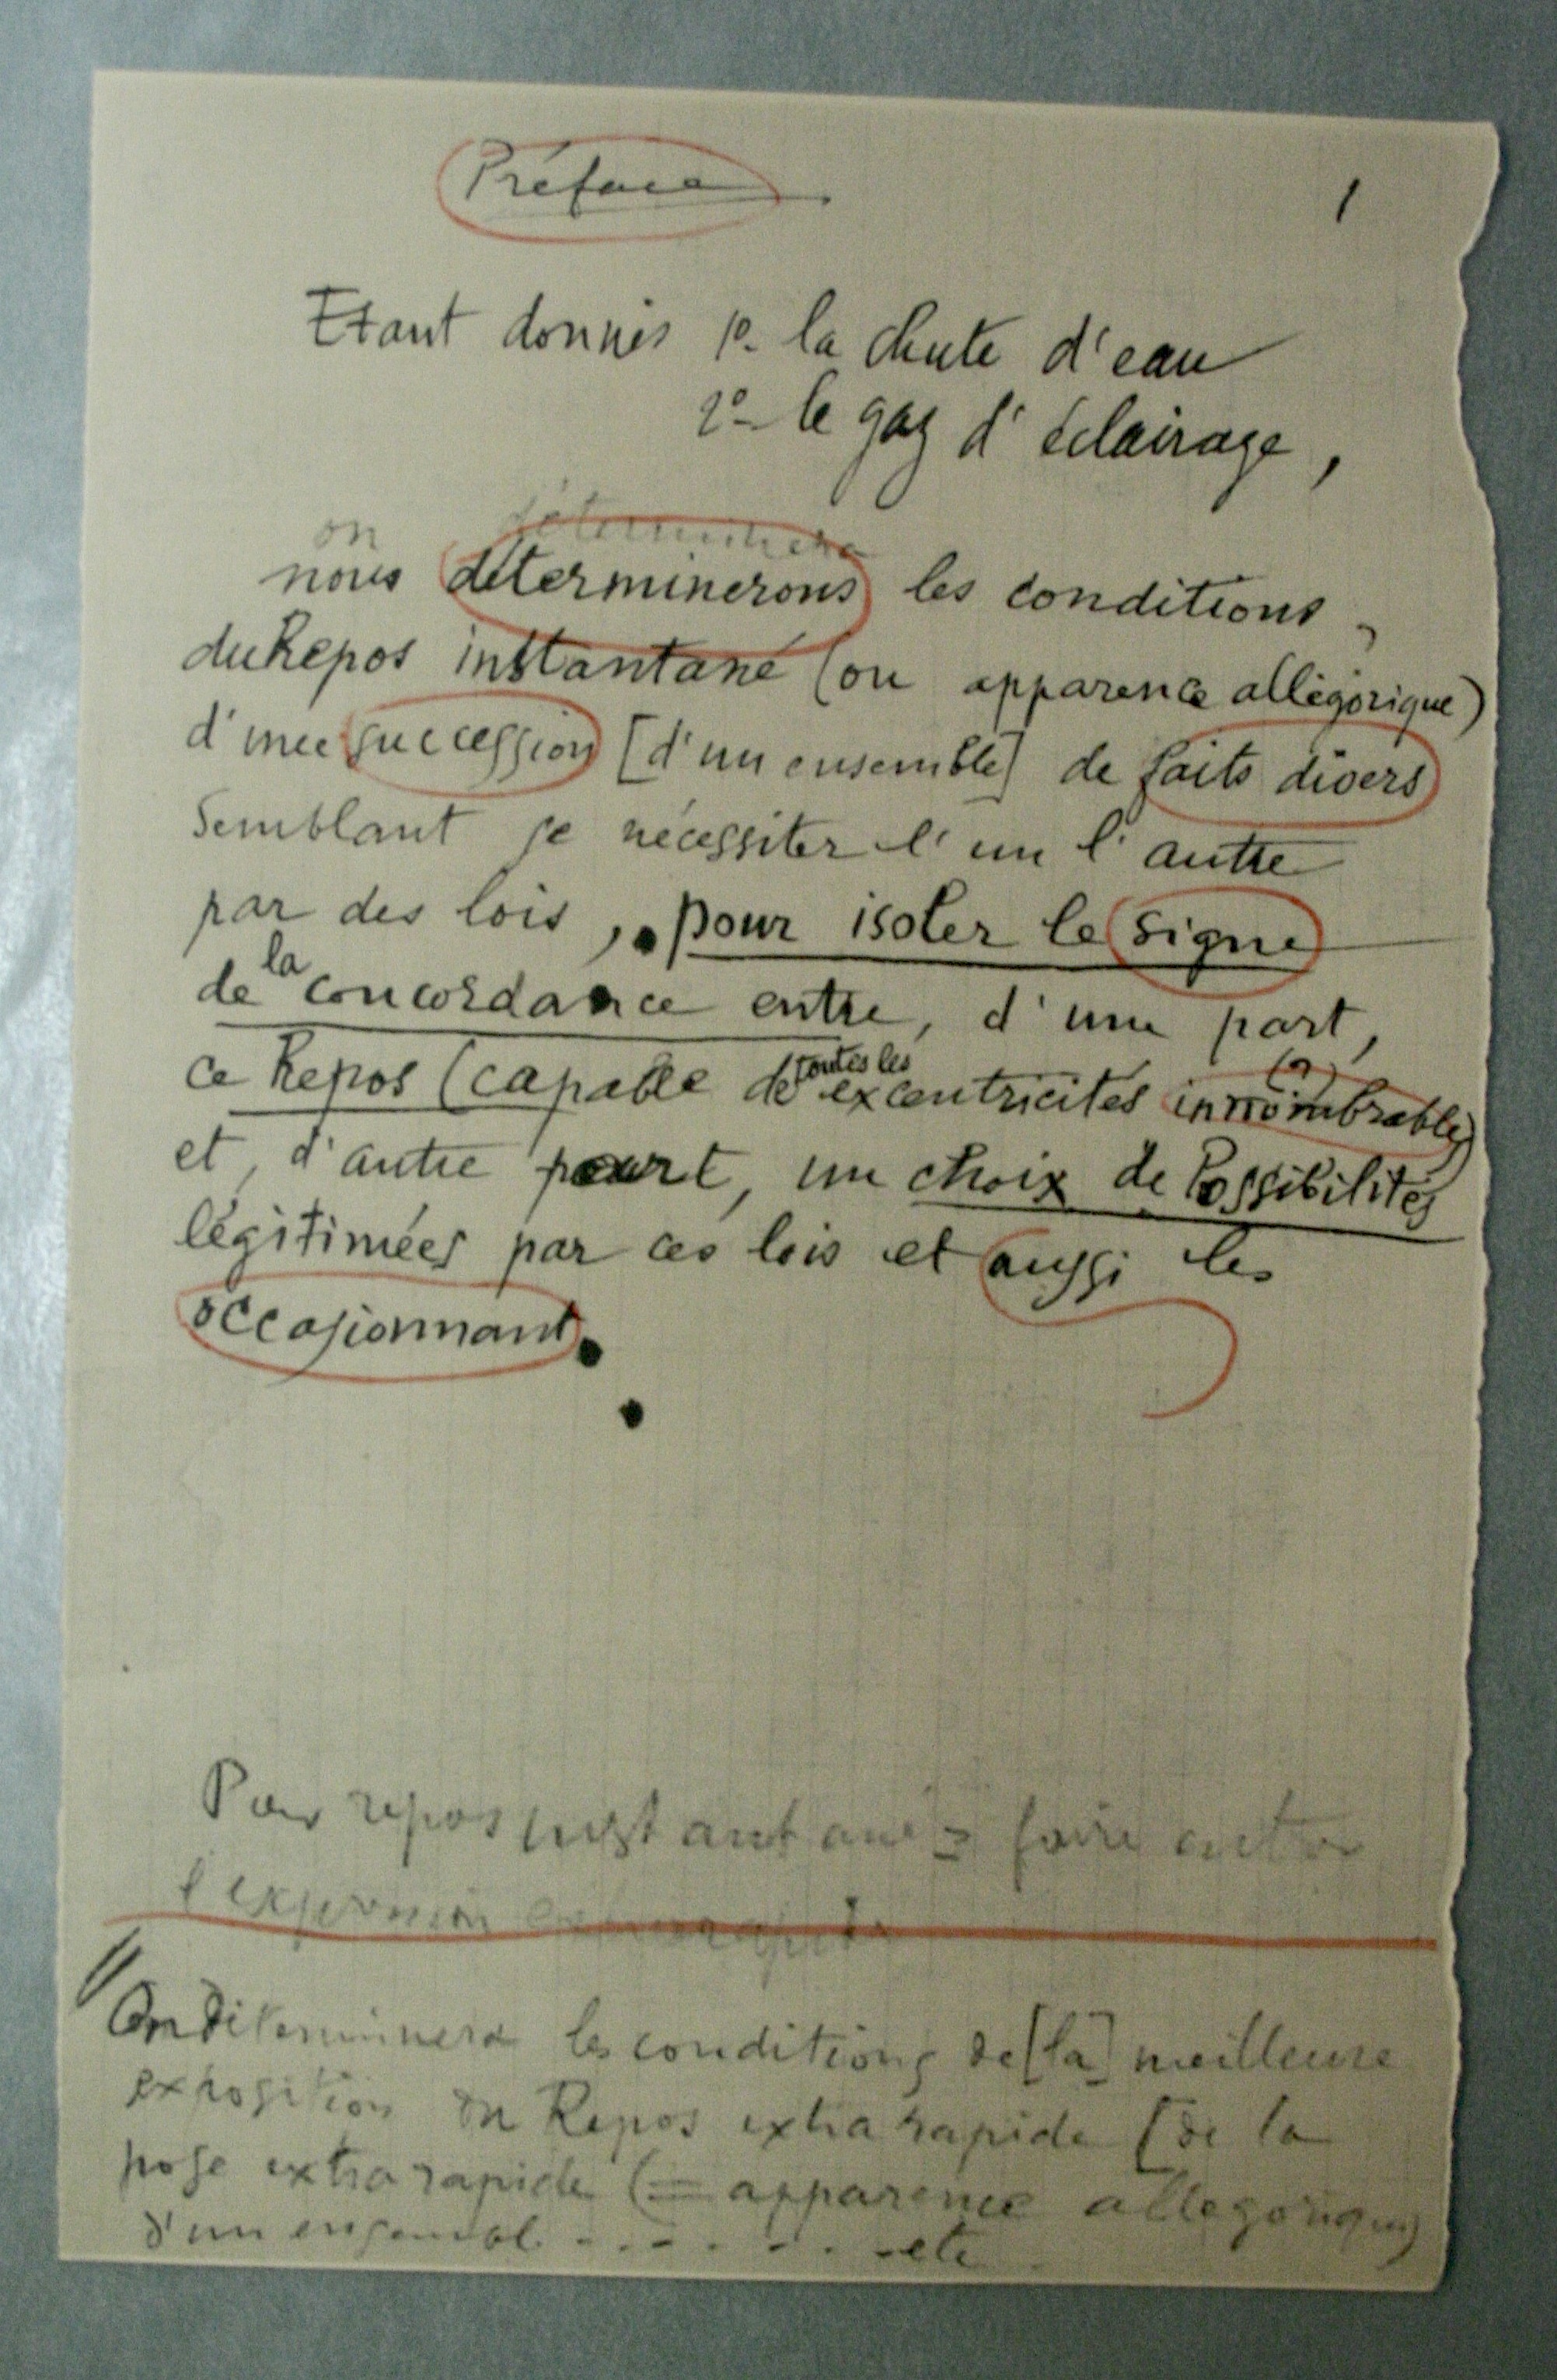 Préface
1
Etant donnés 1º- la chute d'eau
2º- le gaz d'éclairage,
on determinera
nous déterminerons les conditions
du Repos instantané (ou apparence allégorique)
d'une succession [d'un ensemble] de faits divers
Semblant se nécessiter l'un l'autre
par des lois, . pour isoler le signe
la
de concordance entre, d'une part,
toutes les (?)
ce Repos (capable de excentricités innombrables)
et, d'autre part, un choix de Possibilités
légitimées par ces lois et aussi les
occasionnant.
.
Pour repos instantané = faire entrer
l'expression extra rapide
On déterminera les conditions de [la] meilleure
exposition du Repos extra rapide [de la
pose extra rapide (= apparence allegorique)
d'un ensembl. - . - . . . - etc